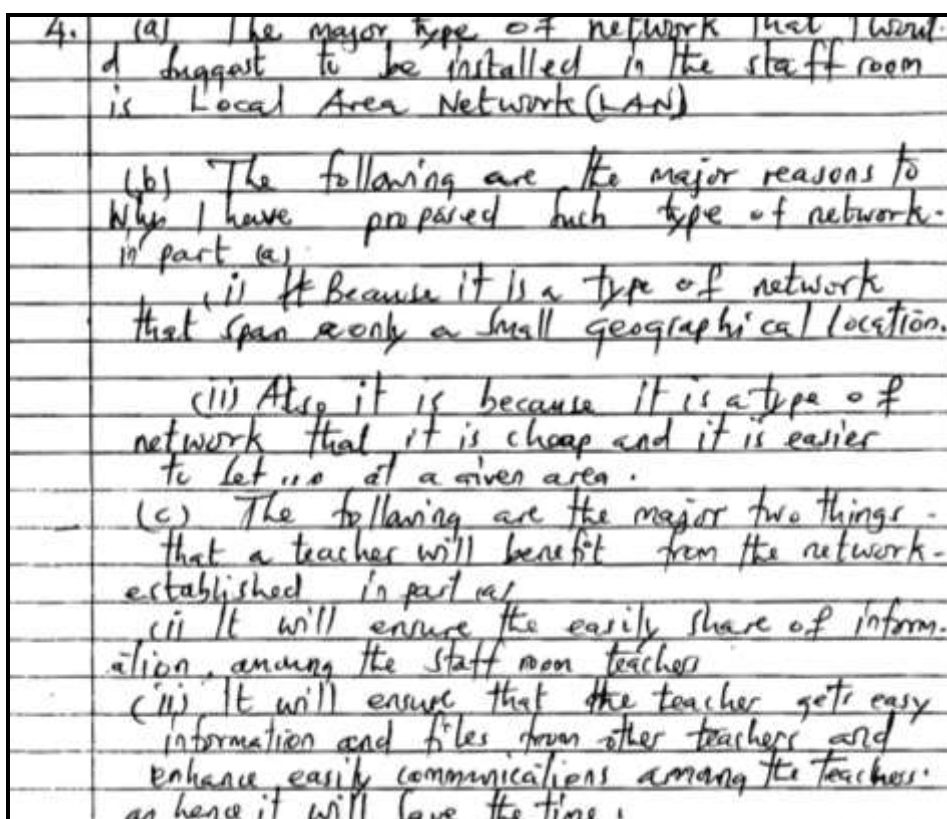 4. (a) The major type of network that I woul-
d suggest to be installed in the staff room
is Local Area Network (LAN)
(b) The following are the major reasons to
Why I have proposed such type of network.
in part (a)
(i) It Because it is a type of network
that span only a small geographical location.
(ii) Also it is because it is a type of
network that it is cheap and it is easier
to set up at a given area.
(c) The following are the major two things -
that a teacher will benefit from the network-
established in part (a)
(i) It will ensure the easily share of inform-
ation, among the staff room teachers
(ii) It will ensure that the teacher gets easy
information and files from other teachers and
enhance easily communications among the teachers.
as hence it will save the time.